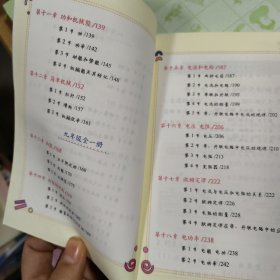 第十一章 功和机械能/139
第1节 功/139
第2节 功率/142
第3节 动能和势能/145
第4节 机械能及其转化/148
第十二章 简单机械/152
第1节 杠杆/152
第2节 滑轮/157
第3节 机械效率/161
九年级全一册
第十五章 电流和电路/187
第1节 两种电荷/187
第2节 电流和电路/190
第3节 串联和并联/194
第4节 电流的测量/198
第5节 串、并联电路中电流的规律/202
第十六章 电压 电阻/206
第1节 电压/206
第2节 串、并联电路中电压的规律/210
第3节 电阻/214
第4节 变阻器/218
第十七章 欧姆定律/222
第1节 电流与电压和电阻的关系/222
第2节 欧姆定律
第3节 电阻的测量
第4节 欧姆定律在串、并联电路中的应用
第十八章 电功率/238
第1节 电能 电功/238
第2节 电功率/242